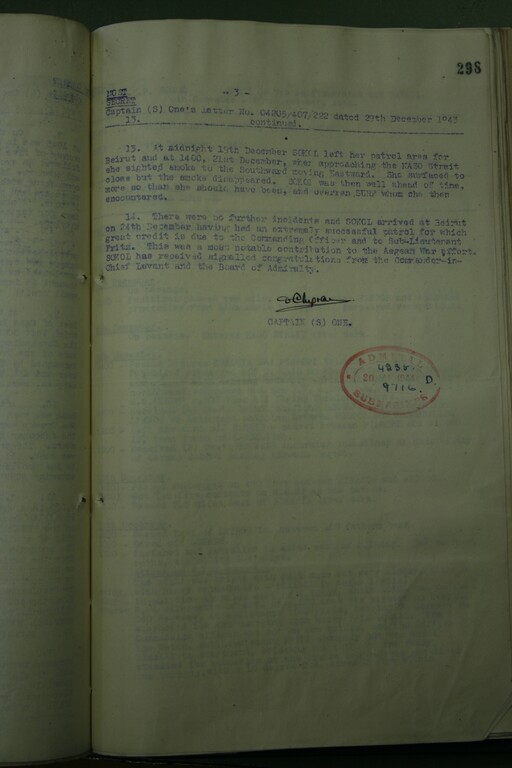 298
MOST
SECRET
- 3 -
Captain (S) One's letter No. 04205/407/222 dated 29th December 1943
13. continued.
13. At midnight 19th December SOKOL left her patrol area for
Beirut and at 1400, 21st December, when approaching the KASO Strait
she sighted smoke to the Southward moving Eastward. She surfaced to
close but the smoke disappeared. SOKOL was then well ahead of time,
more so than she should have been, and overran whom she then
encountered.
14. There were no further incidents and SOKOL arrived at Beirut
on 24th December having had an extremely successful patrol for which
great credit is due to the Commanding Officer and to Sub-Lieutenant
Fritz. This was a most notable contribution to the Aegean War effort.
SOKOL has received signalled congratulations from the Commander-in-
Chief Levant and the Board of Admiralty.
CAPTAIN (S) ONE.
ADMIRAL
4230.
20
971L.
D.
SUBMARINES